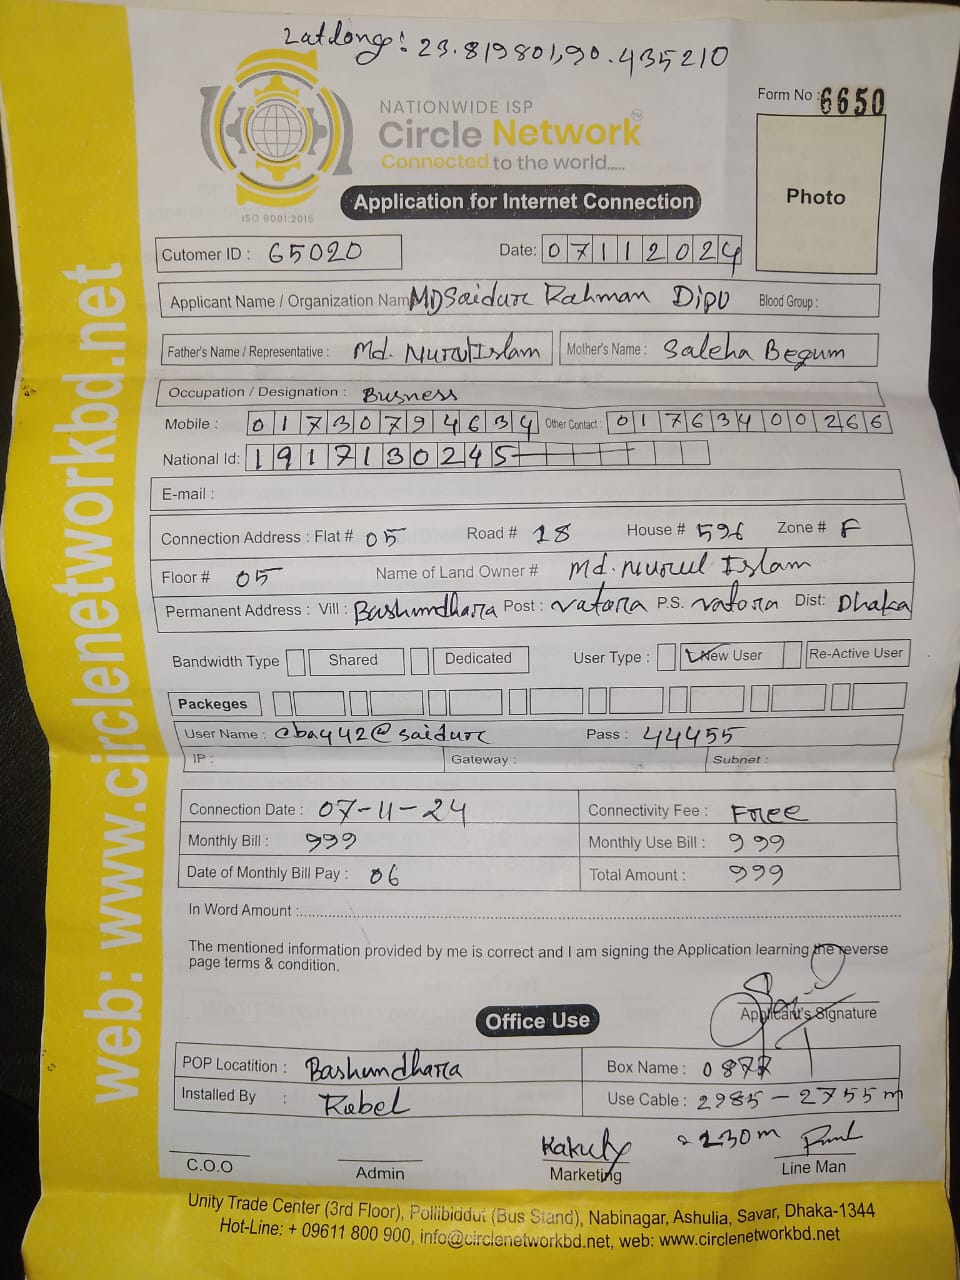 Latlong: 23.819801,90.435210
NATIONWIDE ISP
Circle Network
TM
Connected to the world.....
ISO 9001:2015
Form No : 6650
Photo
Application for Internet Connection
Cutomer ID : 65020 Date: 07112024
Applicant Name / Organization Nam MD Saidur Rahman Dipu Blood Group :
Father's Name / Representative : Md. Nurul Islam Mother's Name : Saleha Begum
Occupation / Designation : Busness
Mobile : 01730794634 Other Contact : 01763400266
National Id: 1917130245
E-mail :
Connection Address : Flat # 05 Road # 18 House # 596 Zone # F
Floor # 05 Name of Land Owner # Md. Nurul Islam
Permanent Address : Vill : Bashundhara Post : vatara P.S. vatara Dist: Dhaka
Bandwidth Type Shared Dedicated User Type : New User Re-Active User
Packeges
User Name : cbay42@saidur Pass : 44455
IP : Gateway : Subnet :
Connection Date : 07-11-24 Connectivity Fee : Free
Monthly Bill : 999 Monthly Use Bill : 999
Date of Monthly Bill Pay : 06 Total Amount : 999
In Word Amount :
The mentioned information provided by me is correct and I am signing the Application learning the reverse
page terms & condition.
Applicant's Signature
Office Use
POP Locatition : Bashundhara Box Name :
Installed By : Rubel Use Cable : 2985 - 2755 m
230m
C.O.O Admin Kakuly Marketing Line Man
Unity Trade Center (3rd Floor), Pollibiddut (Bus Stand), Nabinagar, Ashulia, Savar, Dhaka-1344
Hot-Line: + 09611 800 900, info@circlenetworkbd.net, web: www.circlenetworkbd.net
web: www.circlenetworkbd.net